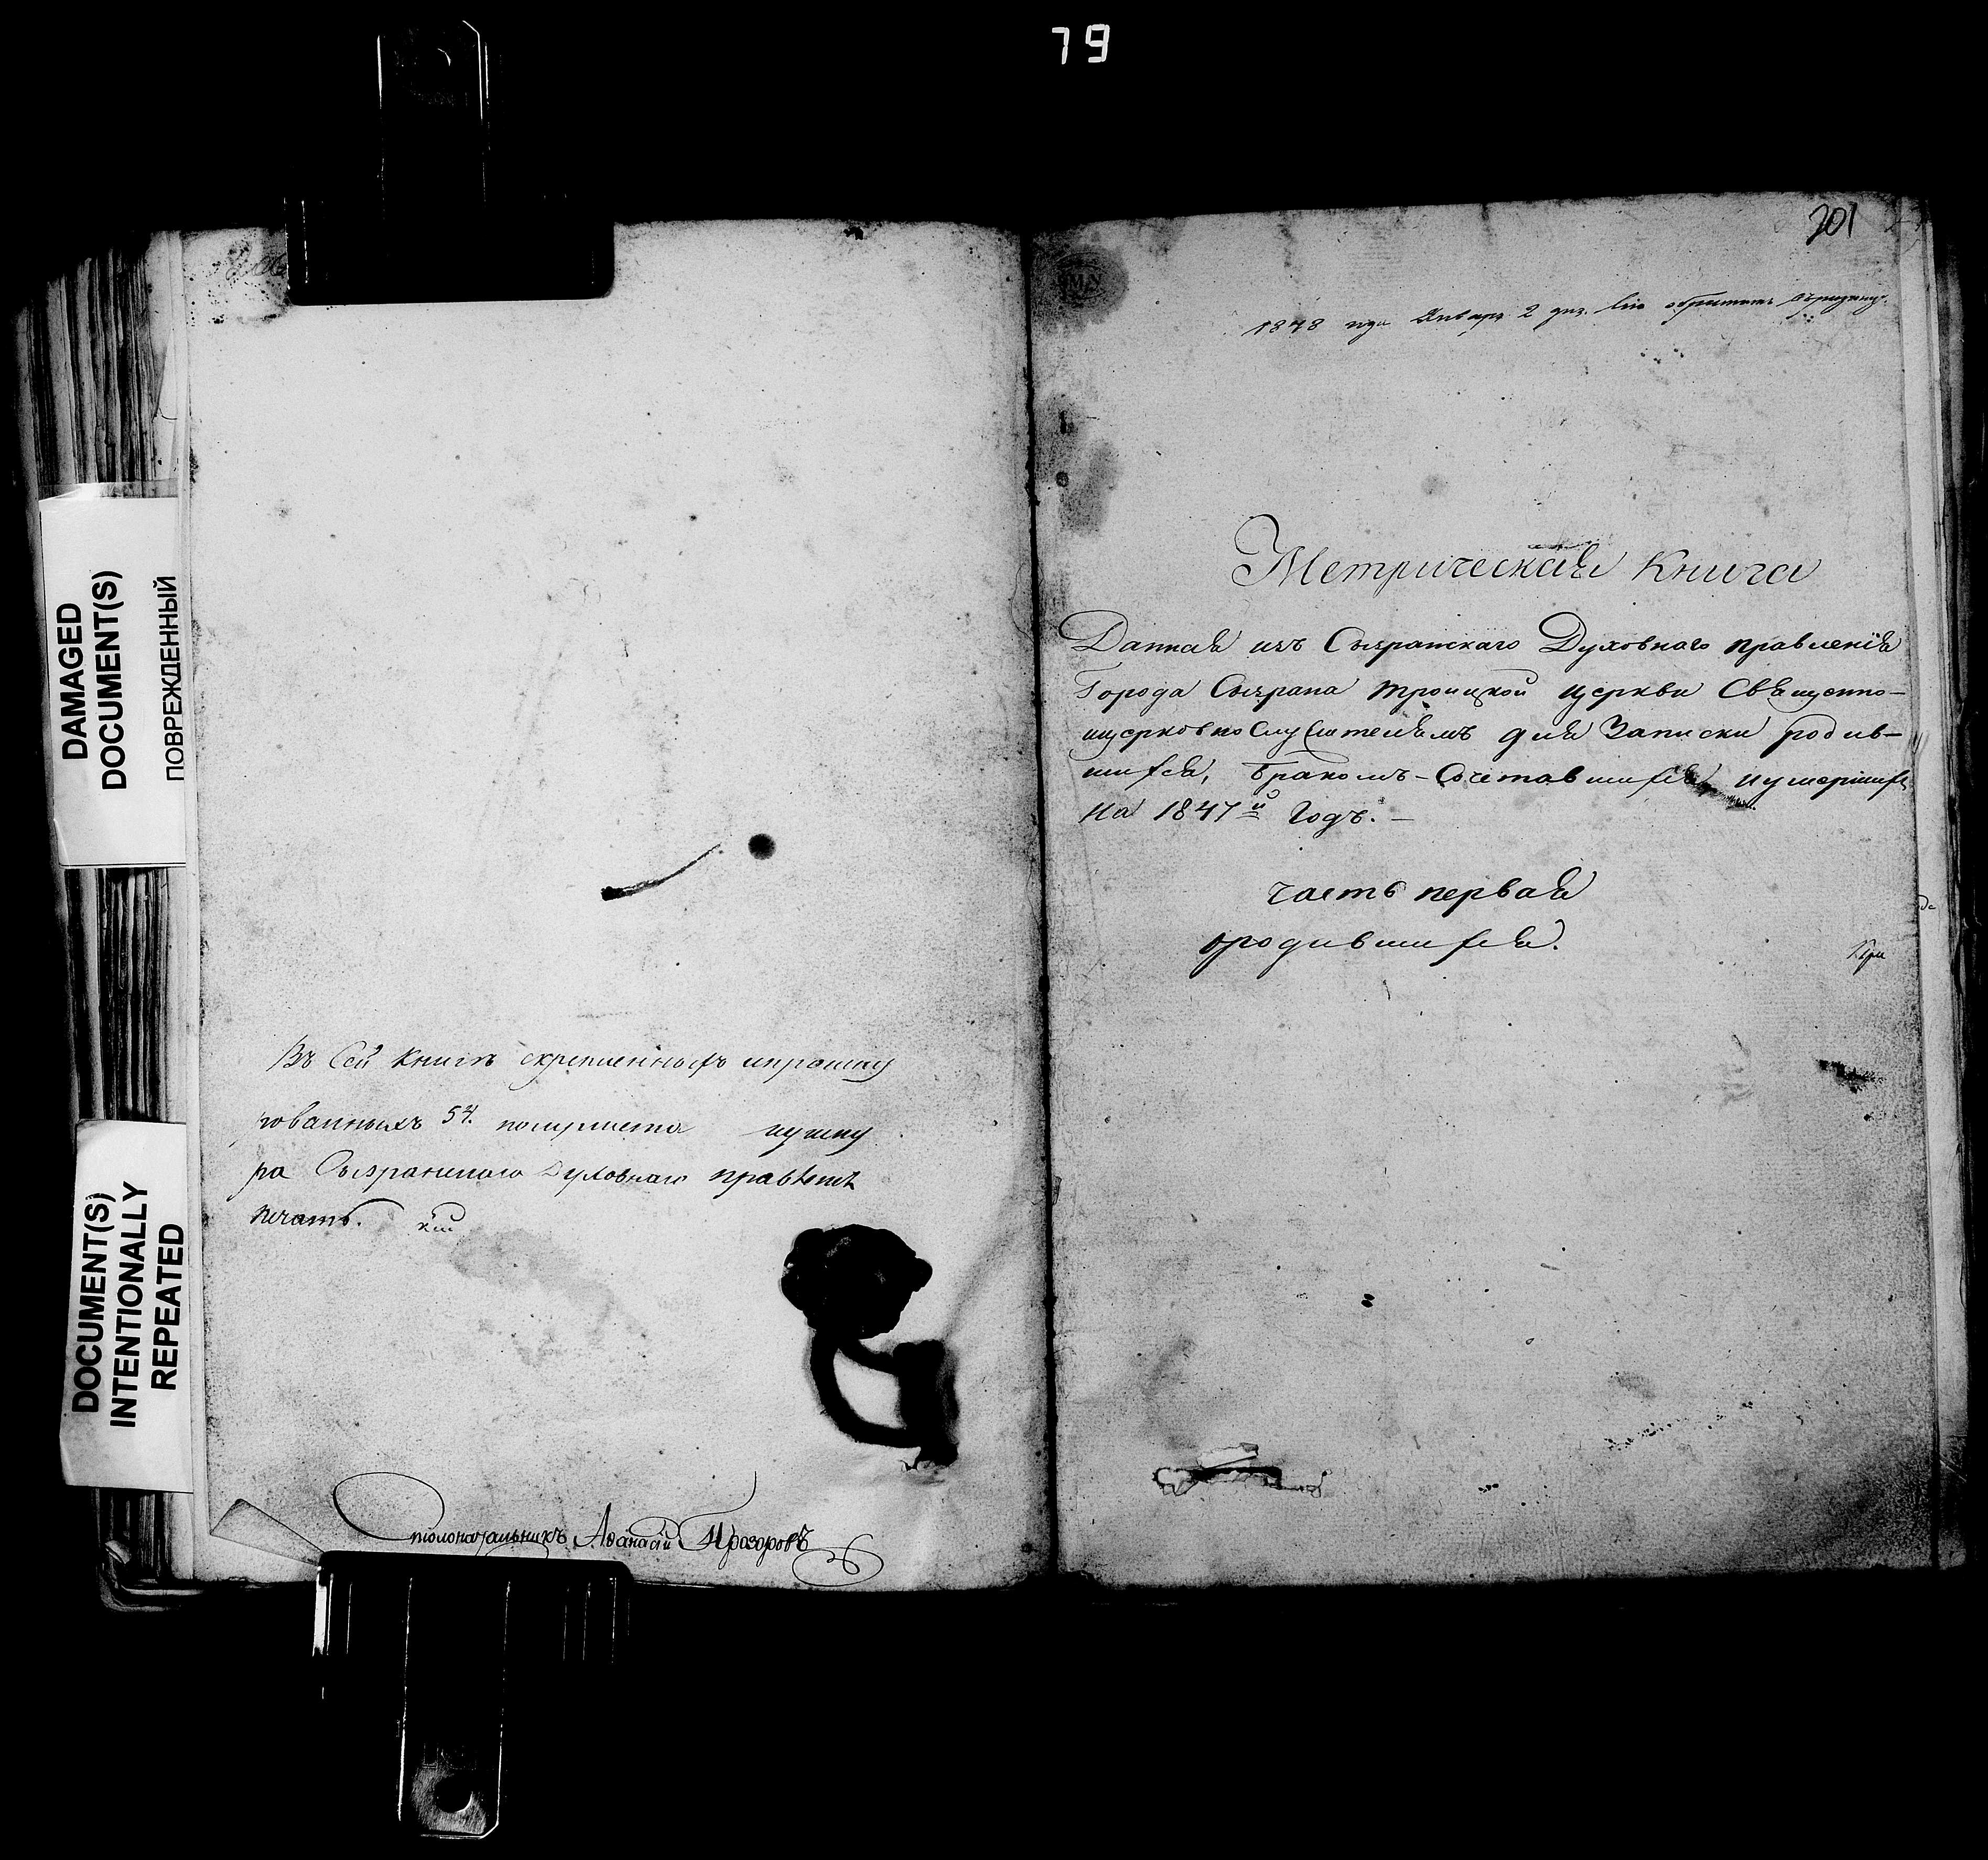 79
DAMAGED
DOCUMENT(S)
ПОВРЕЖДЕННЫЙ
DOCUMENT(S)
INTENTIONALLY
REPEATED
Въ Сей Книгѣ скрепленныхъ ипрошну
рованныхъ 54. полулиста ушну
ра Сызранскаго Духовнаго правленія
печать.
Столоначальникъ Аѳанасій Прозоровъ
201
1848 года Января 2 дня
Метрическая Книга
Данная изъ Сызранскаго Духовнаго правленія
Города Сызрана троицкой церкви Священно-
церковнослужителямъ для Записки родив-
шихся, бракомъ-Сочетавшихся, иумершихъ
На 1847й Годъ. —
часть первая
ородившихся.